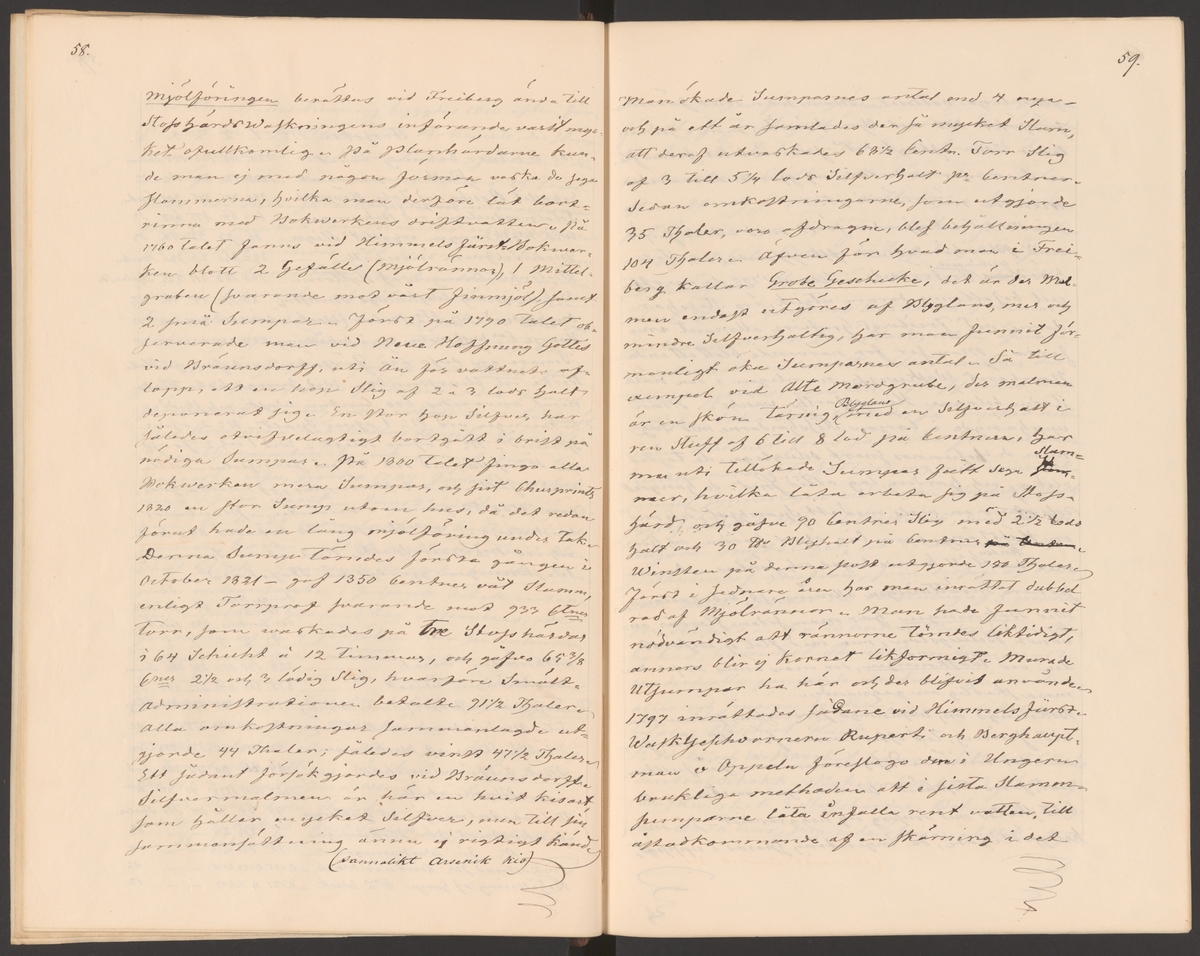 58.
Mjölföringen berättas vid Freiberg ända till
Stosshärds Waskningens införande varit myc-
ket ofullkomlig. På Planhärdarne kun-
de man ej med någon förmon vaska de sega
Slammerna, hvilka man derföre lät bort-
rinna med Bokwerkens driftvatten. På
1760 talet fanns vid Himmelsfürst Bokwer-
ken blott 2 Gefälle (Mjölrännor), 1 Mittel-
graben (svarande mot vårt finmjöl), samt
2 små Sumpar. Först på 1790 talet ob-
serverade man vid Neue Hoffnung Gottes
vid Bräunsdorff, uti Än för vattnets af-
lopp, att en Slig af 2 à 3 lods halt
deponerat sig. En stor hop Silfver har
således otvifvelagtigt bortgått i brist på
nödiga Sumpar. På 1800 talet fingo alla
Bokwerken mera Sumpar, och sist Churprintz
1820 en stor Sump utom hus, då det redan
förut hade en lång mjölföring under tak.
Denna Sump tömdes första gången i
October 1821 – gaf 1350 Centner våt Slamm,
enligt Torrprof svarande mot 933 Ctner
Torr, som waskades på tre Stosshärdar
i 64 Schicht à 12 timmar, och gåfvo 65 3/8
Cner 2 1/2 och 3 lödig Slig, hvarföre Smält-
Administrationen betalte 91 1/2 Thaler.
Alla omkostningar sammanlagde ut-
gjorde 44 Thaler; således vinst 47 1/2 Thaler.
Ett sådant försök gjordes vid Bräunsdorff.
Silfvermalmen är här en hvit kisart
som håller mycket Silfver, men till sin
sammansättning ännu ej rigtigt känd.
(sannolikt Arsenik kis)
59.
Man ökade Sumparnes antal med 4 nya –
och på ett år samlades der så mycket Slam,
att deraf utvaskades 68 1/2 Centn. Torr Slig
af 3 till 5 1/4 lods Silfverhalt pr Centner.
Sedan omkostningarne, som utgjorde
35 Thaler, voro afdragne, blef behållningen
104 Thaler. Äfven för hvad man i Frei-
berg kallar Grobe Geschicke, det är der Mal-
men endast utgöres af Blyglans, mer och
mindre Silfverhaltig, har man funnit för-
månligt öka Sumparnes antal. Så till
exempel vid Alte Mordgrube, der malmen
är en skön tärnig Blyglans med en Silfverhalt i
ren Stuff af 6 till 8 lod på Centnern, har
man uti tillökade Sumpar fått sega Slam-
mer, hvilka låta arbeta sig på Stoss-
härd, och gåfvo 90 Centner Slig med 2 1/2 lods
halt och 30 ℔ Blyhalt på Centner.
Winsten på denna post utgjorde 180 Thaler.
Först i sednare åren har man inrättat dubbel
rad af Mjölrännor. Man hade funnit
nödvändigt att rännorne tömdes liktidigt,
annars blir ej kornet likformigt. Murade
Utsumpar ha här och der blifvit använde.
1797 inrättades sådane vid Himmelsfürst.
Waskgeschwornern Ruperti och Berghaupt-
man v Oppeln föreslogo den i Ungern
brukliga methoden att i sista Slamm-
sumparne låta infalla rent vatten, till
åstadkommande af en skärning i det